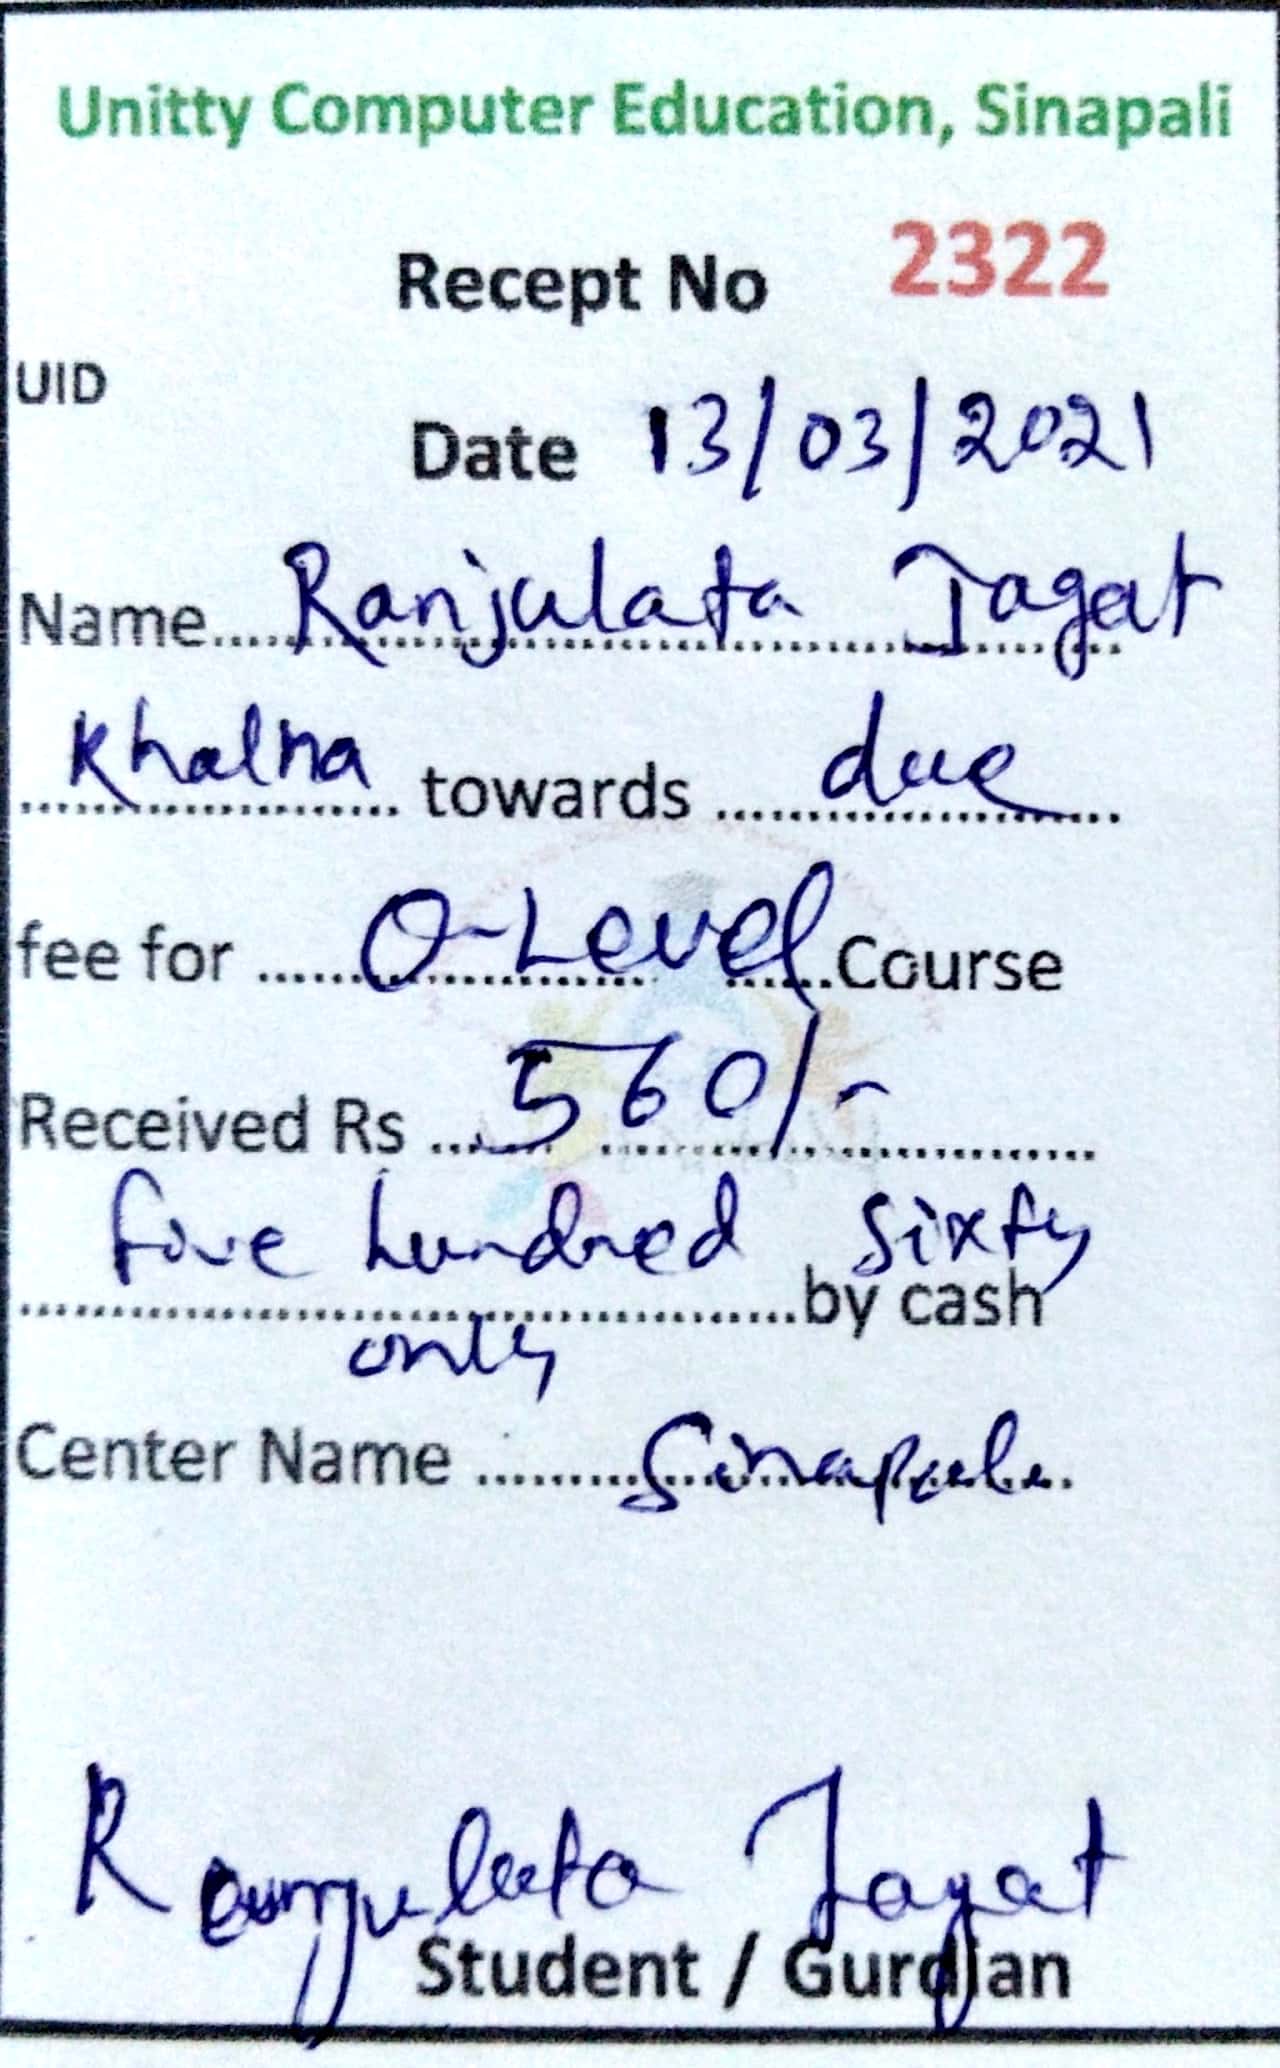 Unitty Computer Education, Sinapali
Recept No 2322
UID
Date 13/03/2021
Name Ranjulata Jagat
Khalna towards due
fee for O-Level Course
Received Rs 560/-
five hundred sixty
by cash
only
Center Name Sinapali
Ranjulata Jagat
Student / Gurdian